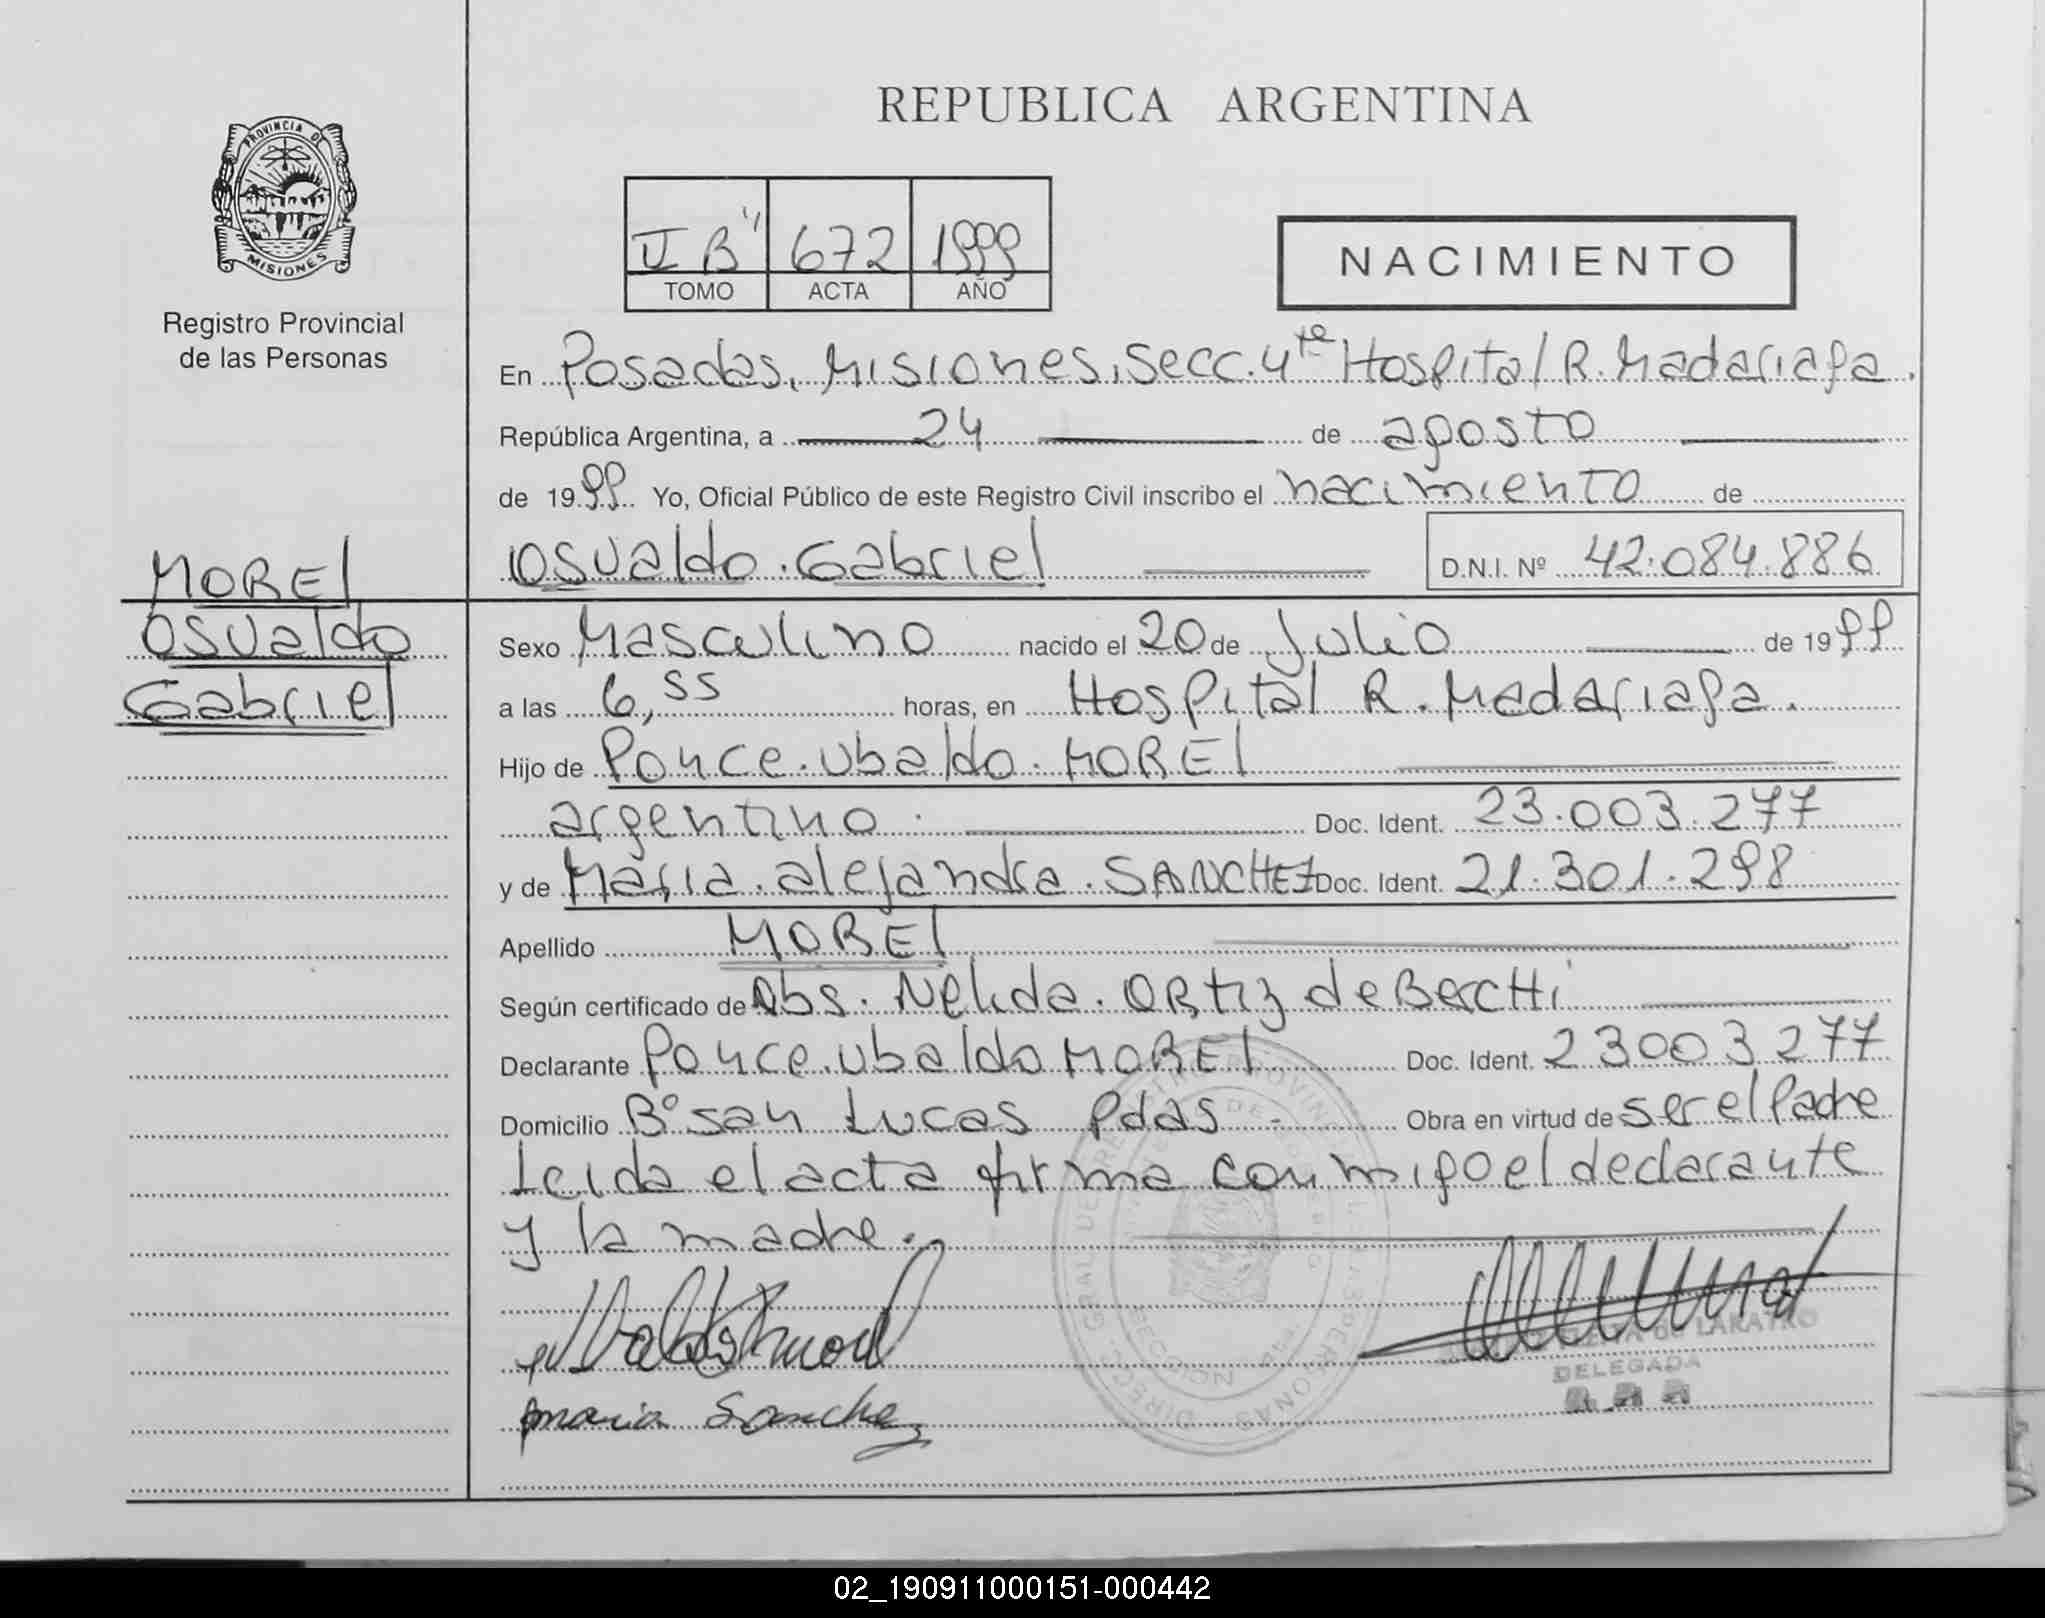 REPUBLICA ARGENTINA
PROVINCIA DE
MISIONES
Registro Provincial
de las Personas
II B" 672 1999
TOMO ACTA AÑO
NACIMIENTO
En Posadas, Misiones, Secc. 4ta Hospital R. Madariaga.
República Argentina, a 24 de agosto
de 1999 Yo, Oficial Público de este Registro Civil inscribo el nacimiento de
Osvaldo. Gabriel D.N.I. Nº 42.084.886
MOREl
Osvaldo
Gabriel
Sexo Masculino nacido el 20 de Julio de 1999
a las 6,55 horas, en Hospital R. Madariaga.
Hijo de Ponce. Ubaldo. MOREl
argentino. Doc. Ident. 23.003.277
y de Maria. alejandra. SANCHEZ Doc. Ident. 21.301.298
Apellido MOREl
Según certificado de Obs. Nelida. ORtiz de BercHi
Declarante Ponce. Ubaldo MOREl Doc. Ident. 23003277
Domicilio Bº San Lucas Pdas Obra en virtud de ser el Padre
Leida el acta firma conmigo el declarante
y la madre.
maria Sanchez
DE LAKATKO
DELEGADA
02_190911000151-000442